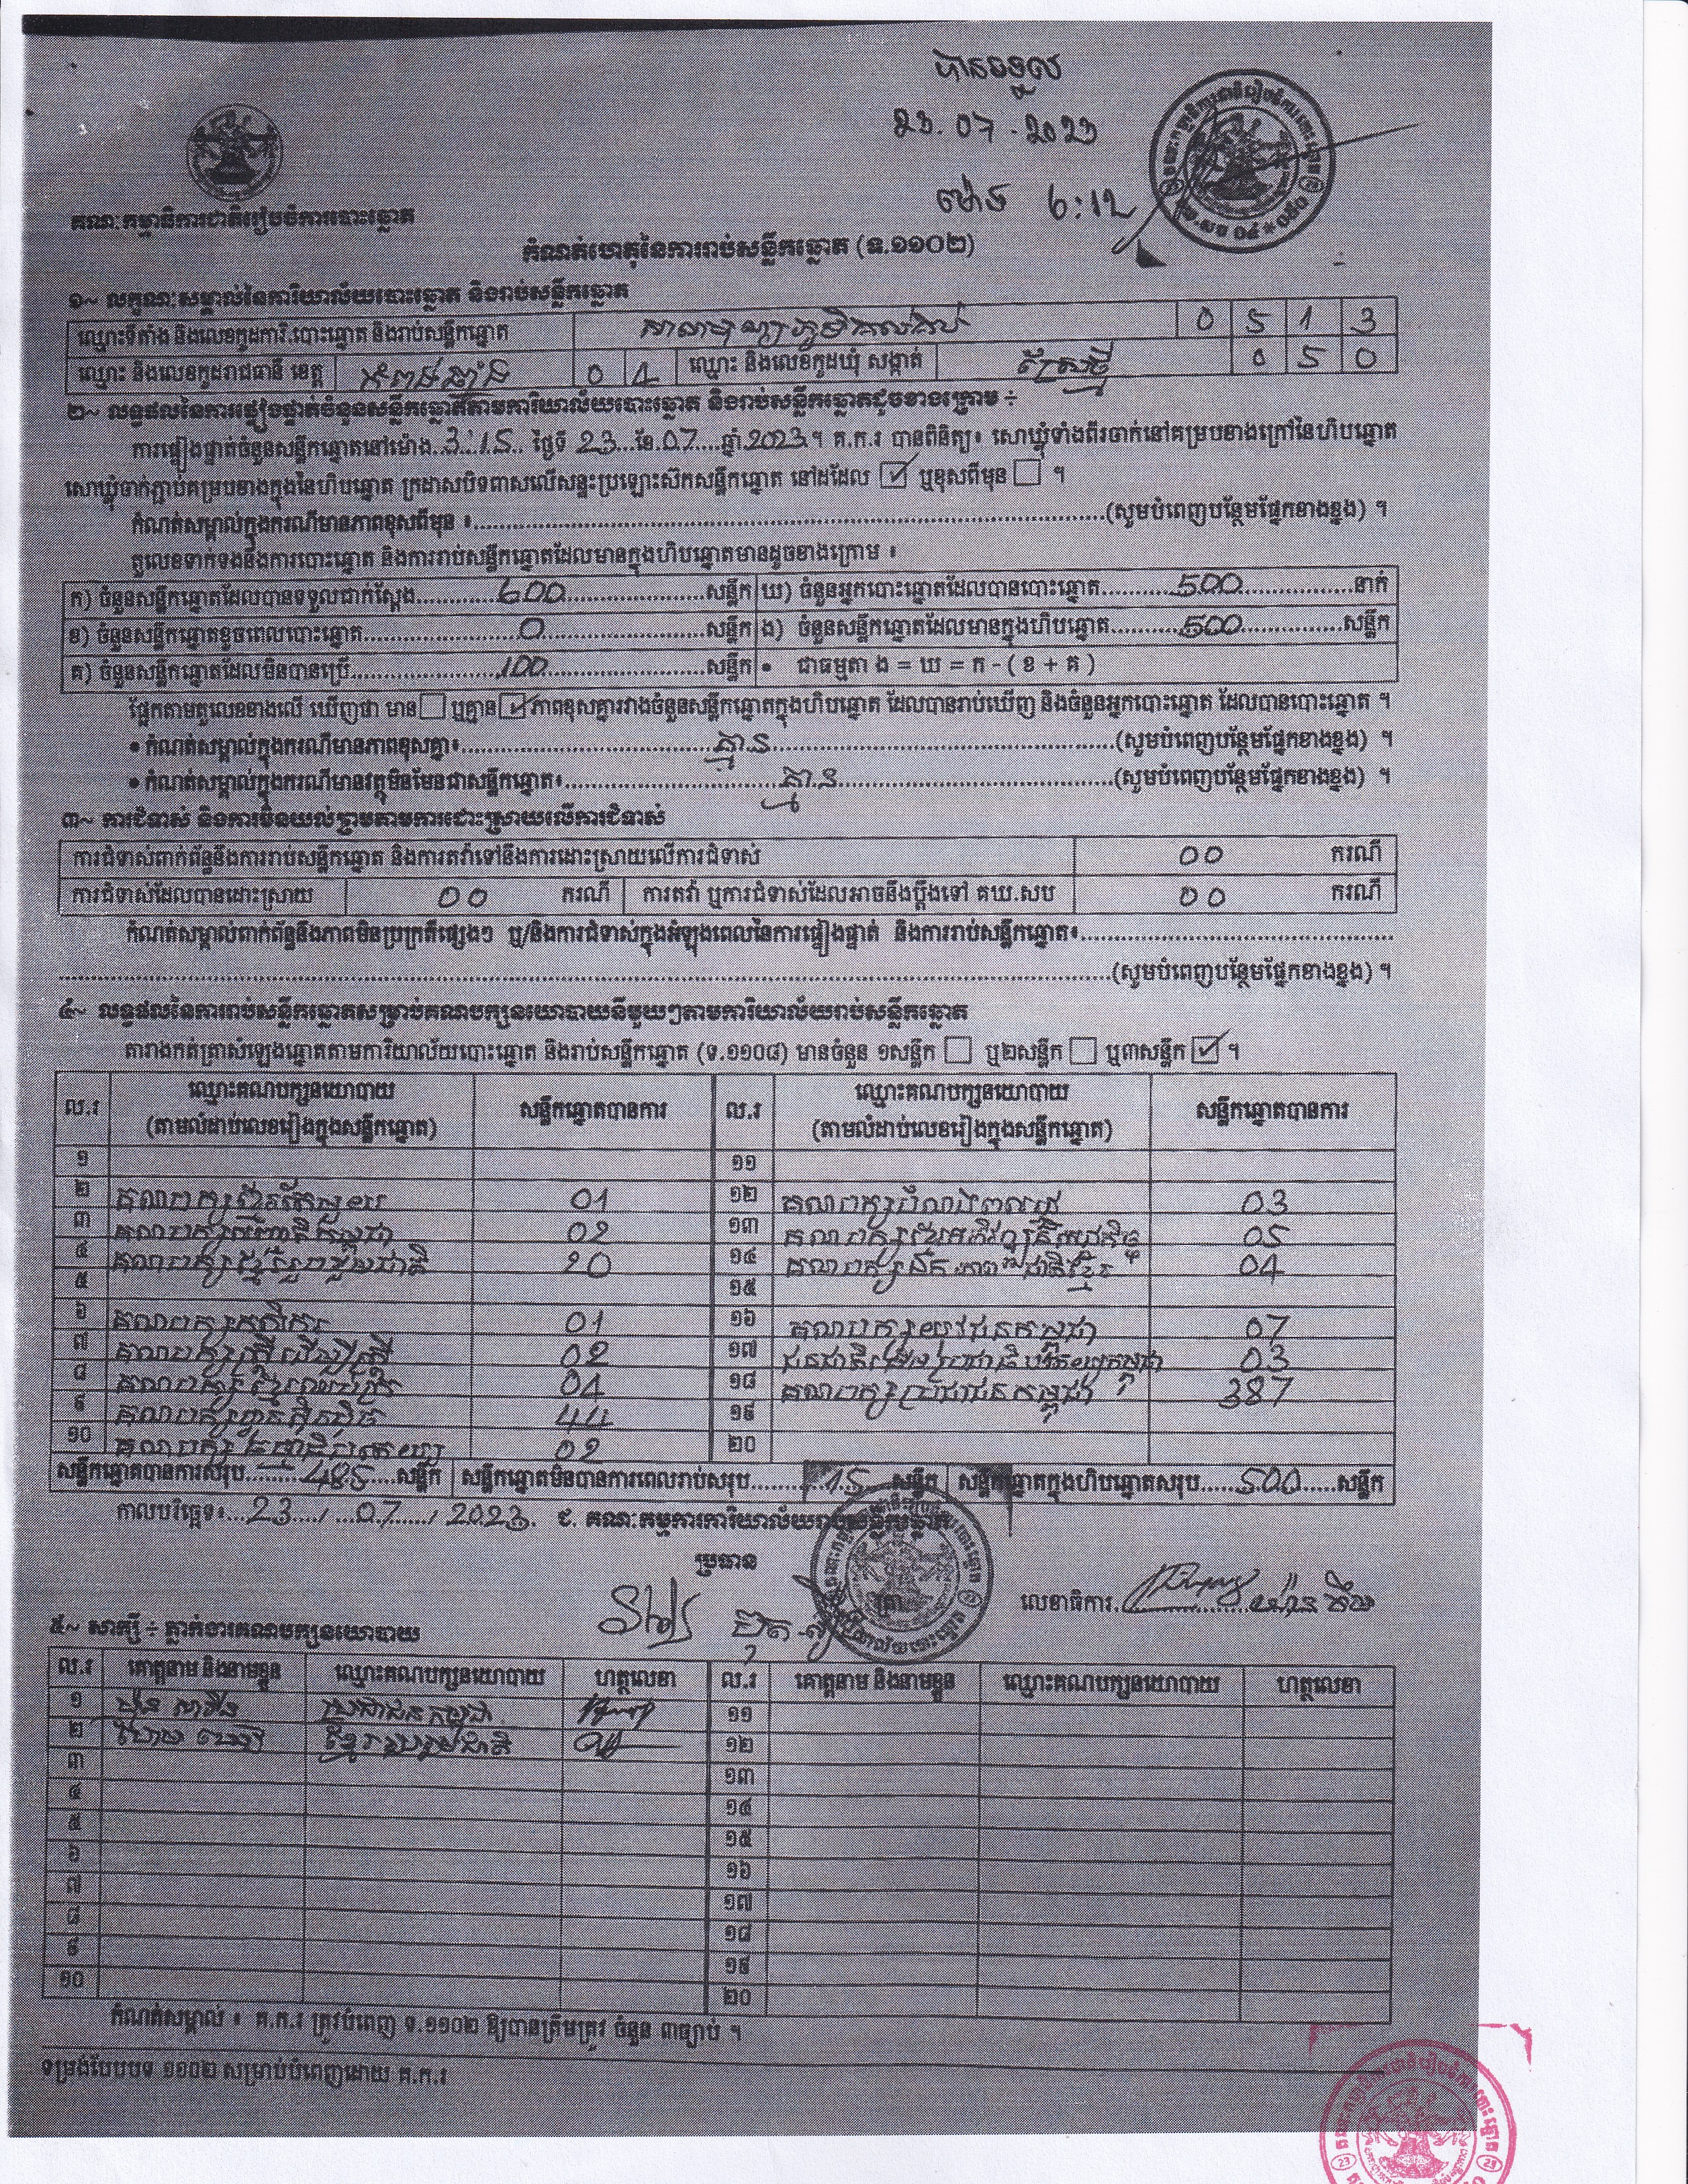 បានទទួល
23.07.2023
ម៉ោង 6:12
គណៈកម្មាធិការជាតិរៀបចំការបោះឆ្នោត
កំណត់ហេតុនៃការរាប់សន្លឹកឆ្នោត (ទ.១១០២)
១~ លក្ខណៈសម្គាល់នៃការិយាល័យបោះឆ្នោត និងរាប់សន្លឹកឆ្នោត
ឈ្មោះទីតាំង និងលេខកូដការិ.បោះឆ្នោត និងរាប់សន្លឹកឆ្នោត 0 5 1 3
ឈ្មោះ និងលេខកូដរាជធានី ខេត្ត កំពង់ឆ្នាំង 0 4 ឈ្មោះ និងលេខកូដឃុំ សង្កាត់ 0 5 0
២~ លទ្ធផលនៃការផ្ទៀងផ្ទាត់ចំនួនសន្លឹកឆ្នោតតាមការិយាល័យបោះឆ្នោត និងរាប់សន្លឹកឆ្នោតដូចខាងក្រោម ÷
ការផ្ទៀងផ្ទាត់ចំនួនសន្លឹកឆ្នោតនៅម៉ោង 3:15 ថ្ងៃទី 23 ខែ 07 ឆ្នាំ 2023 ។ គ.ក.រ បានពិនិត្យ៖ សោឃ្លុំទាំងពីរចាក់នៅគម្របខាងក្រៅនៃហិបឆ្នោត
សោឃ្លុំចាក់ភ្ជាប់គម្របខាងក្នុងនៃហិបឆ្នោត ក្រដាសបិទពាសលើសន្ទះប្រឡោះស៊កសន្លឹកឆ្នោត នៅដដែល ☑ ឬខុសពីមុន ☐ ។
កំណត់សម្គាល់ក្នុងករណីមានភាពខុសពីមុន ៖ (សូមបំពេញបន្ថែមផ្នែកខាងខ្នង) ។
តួលេខទាក់ទងនឹងការបោះឆ្នោត និងការរាប់សន្លឹកឆ្នោតដែលមានក្នុងហិបឆ្នោតមានដូចខាងក្រោម ៖
ក) ចំនួនសន្លឹកឆ្នោតដែលបានទទួលជាក់ស្តែង 600 សន្លឹក ឃ) ចំនួនអ្នកបោះឆ្នោតដែលបានបោះឆ្នោត 500 នាក់
ខ) ចំនួនសន្លឹកឆ្នោតខូចពេលបោះឆ្នោត 0 សន្លឹក ង) ចំនួនសន្លឹកឆ្នោតដែលមានក្នុងហិបឆ្នោត 500 សន្លឹក
គ) ចំនួនសន្លឹកឆ្នោតដែលមិនបានប្រើ 100 សន្លឹក • ជាធម្មតា ង = ឃ = ក - ( ខ + គ )
ផ្អែកតាមតួលេខខាងលើ ឃើញថា មាន ☐ ឬគ្មាន ☑ ភាពខុសគ្នារវាងចំនួនសន្លឹកឆ្នោតក្នុងហិបឆ្នោត ដែលបានរាប់ឃើញ និងចំនួនអ្នកបោះឆ្នោត ដែលបានបោះឆ្នោត ។
• កំណត់សម្គាល់ក្នុងករណីមានភាពខុសគ្នា៖ គ្មាន (សូមបំពេញបន្ថែមផ្នែកខាងខ្នង) ។
• កំណត់សម្គាល់ក្នុងករណីមានវត្ថុមិនមែនជាសន្លឹកឆ្នោត៖ គ្មាន (សូមបំពេញបន្ថែមផ្នែកខាងខ្នង) ។
៣~ ការជំទាស់ និងការមិនយល់ព្រមតាមការដោះស្រាយលើការជំទាស់
ការជំទាស់ពាក់ព័ន្ធនឹងការរាប់សន្លឹកឆ្នោត និងការតវ៉ាទៅនឹងការដោះស្រាយលើការជំទាស់ 00 ករណី
ការជំទាស់ដែលបានដោះស្រាយ 00 ករណី ការតវ៉ា ឬការជំទាស់ដែលអាចនឹងប្តឹងទៅ គឃ.សប 00 ករណី
កំណត់សម្គាល់ពាក់ព័ន្ធនឹងភាពមិនប្រក្រតីផ្សេងៗ ឬ/និងការជំទាស់ក្នុងអំឡុងពេលនៃការផ្ទៀងផ្ទាត់ និងការរាប់សន្លឹកឆ្នោត៖
(សូមបំពេញបន្ថែមផ្នែកខាងខ្នង) ។
៤~ លទ្ធផលនៃការរាប់សន្លឹកឆ្នោតសម្រាប់គណបក្សនយោបាយនីមួយៗតាមការិយាល័យរាប់សន្លឹកឆ្នោត
តារាងកត់ត្រាសំឡេងឆ្នោតតាមការិយាល័យបោះឆ្នោត និងរាប់សន្លឹកឆ្នោត (ទ.១១០៨) មានចំនួន ១សន្លឹក ☐ ឬ២សន្លឹក ☐ ឬ៣សន្លឹក ☑ ។
ល.រ ឈ្មោះគណបក្សនយោបាយ (តាមលំដាប់លេខរៀងក្នុងសន្លឹកឆ្នោត) សន្លឹកឆ្នោតបានការ ល.រ ឈ្មោះគណបក្សនយោបាយ (តាមលំដាប់លេខរៀងក្នុងសន្លឹកឆ្នោត) សន្លឹកឆ្នោតបានការ
១ ១១
២ គណបក្ស 01 ១២ គណបក្ស 03
៣ គណបក្ស 02 ១៣ គណបក្ស 05
៤ គណបក្សខ្មែររួបរួមជាតិ 20 ១៤ គណបក្សឯកភាពជាតិខ្មែរ 04
៥ ១៥
៦ គណបក្សកសិករ 01 ១៦ គណបក្សយុវជនកម្ពុជា 07
៧ គណបក្សស្ត្រីដើម្បីស្ត្រី 02 ១៧ 03
៨ គណបក្ស 04 ១៨ គណបក្សប្រជាជនកម្ពុជា 387
៩ គណបក្សហ្វ៊ុនស៊ិនប៉ិច 44 ១៩
១០ គណបក្ស 02 ២០
សន្លឹកឆ្នោតបានការសរុប 485 សន្លឹក សន្លឹកឆ្នោតមិនបានការពេលរាប់សរុប 15 សន្លឹក សន្លឹកឆ្នោតក្នុងហិបឆ្នោតសរុប 500 សន្លឹក
កាលបរិច្ឆេទ៖ 23 / 07 / 2023. ជ. គណៈកម្មការការិយាល័យរាប់សន្លឹកឆ្នោត
ប្រធាន
លេខាធិការ
៥~ សាក្សី ÷ ភ្នាក់ងារគណបក្សនយោបាយ
ល.រ គោត្តនាម និងនាមខ្លួន ឈ្មោះគណបក្សនយោបាយ ហត្ថលេខា ល.រ គោត្តនាម និងនាមខ្លួន ឈ្មោះគណបក្សនយោបាយ ហត្ថលេខា
១ ប្រជាជនកម្ពុជា ១១
២ ខ្មែររួបរួមជាតិ ១២
៣ ១៣
៤ ១៤
៥ ១៥
៦ ១៦
៧ ១៧
៨ ១៨
៩ ១៩
១០ ២០
កំណត់សម្គាល់ ៖ គ.ក.រ ត្រូវបំពេញ ទ.១១០២ ឱ្យបានត្រឹមត្រូវ ចំនួន ៣ច្បាប់ ។
ទម្រង់បែបបទ ១១០២ សម្រាប់បំពេញដោយ គ.ក.រ